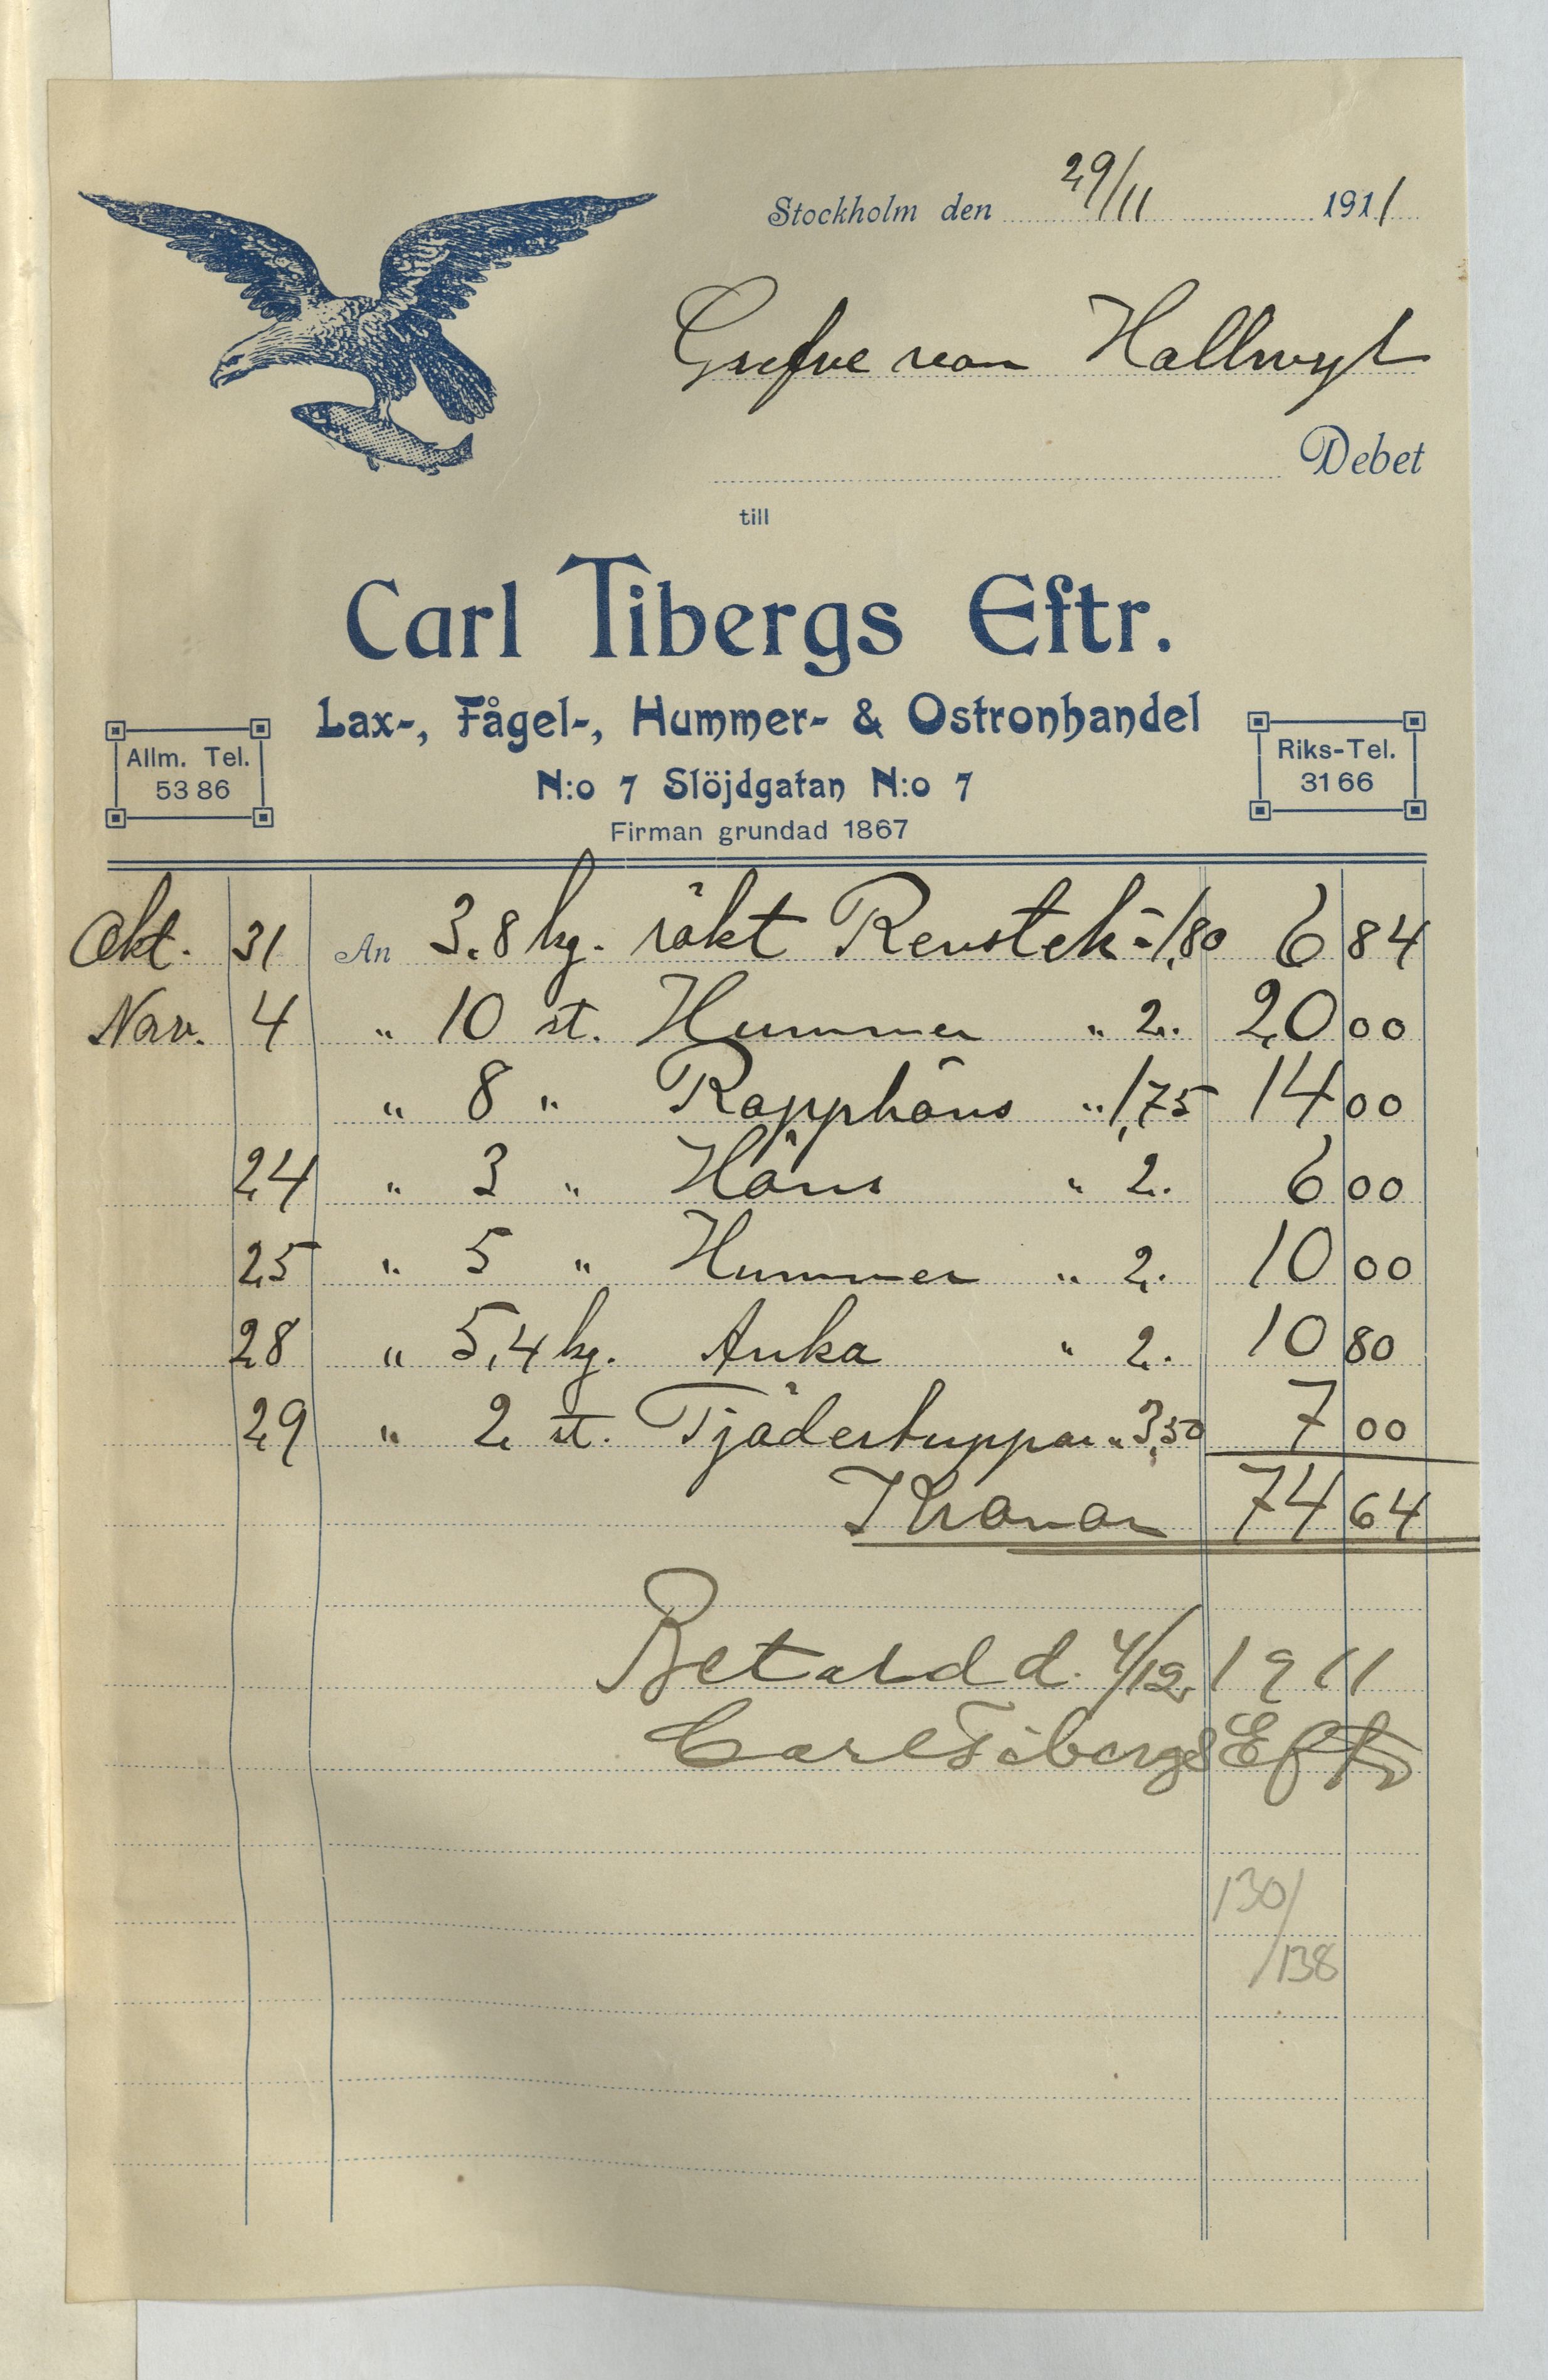 Stockholm den 29/11 1911
Grefve von Hallwyl
Debet
till
Carl Tibergs Eftr.
Lax-, Fågel-, Hummer- & Ostronhandel
Allm. Tel. 53 86
N:o 7 Slöjdgatan N:o 7
Riks-Tel. 31 66
Firman grundad 1867
Okt. 31 An 3.8 kg. rökt Renstek - 1,80 6 84
Nov. 4 " 10 st. Hummer " 2. 20 00
" 8 " Rapphöns " 1,75 14 00
24 " 3 " Höns " 2. 6 00
25 " 5 " Hummer " 2. 10 00
28 " 5,4 kg. Anka " 2. 10 80
29 " 2 st. Tjädertuppar " 3,50 7 00
Kronor 74 64
Betald d. 4/12 1911
Carl Tibergs Eftr
130/
/138